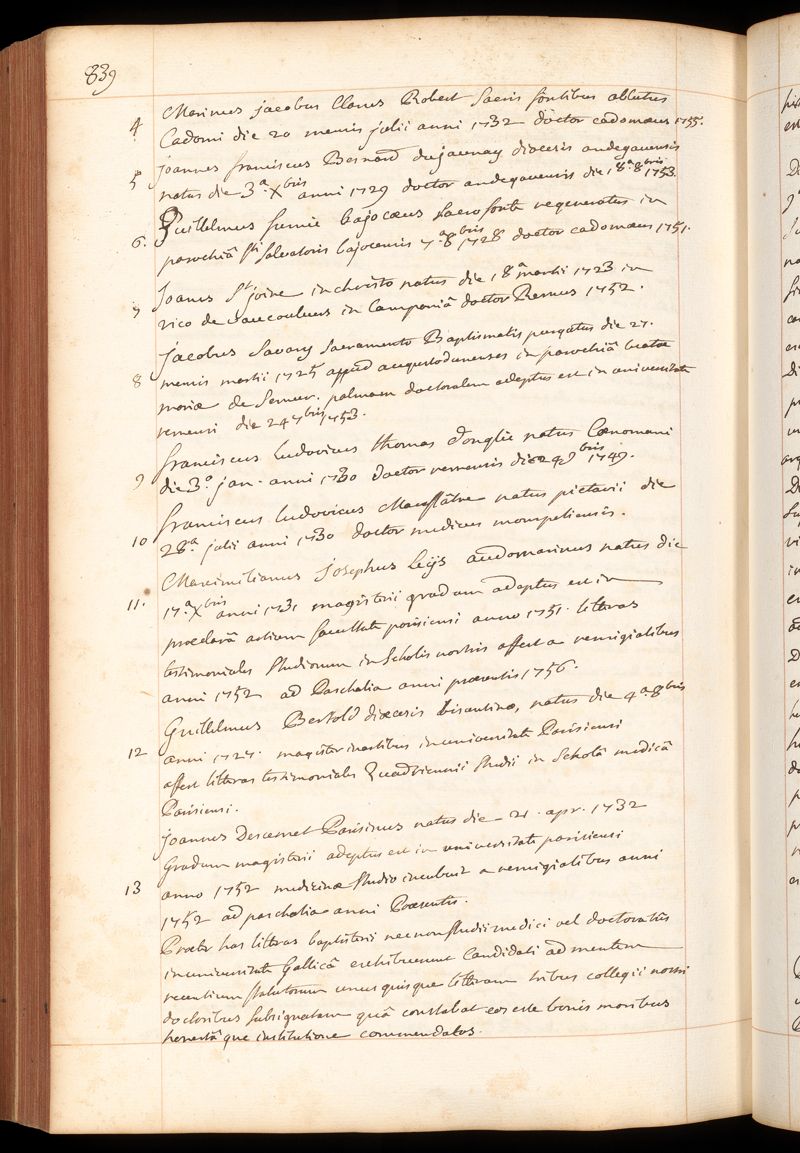 839
4 Marinus jacobus Clarus Robert Sacris fontibus ablutus
Cadomi die 20 mensis julii anni 1732 doctor cadomæus 1755.
5 joannes franciscus Bernard dujaunay diocesis andegavensis
natus die 3.a Xbris anni 1729 doctor andegavensis die 18.a 8bris 1753.
6. Guillelmus bajocæus Sacro fonte regeneratus in
parochiâ Sti Salvatoris bajocensis 7.a 8bris 1728 doctor cadomæus 1751.
7 Joanes St joire in christo natus die 18a martii 1723 in
vico de Vaucouleurs in Campaniâ doctor Remus 1752.
Jacobus Savary Sacramento Baptismatis purgatus die 27.
8 mensis martii 1725 apud augustodunenses in parochiâ beatæ
mariæ de Semur. palmam doctoralem adeptus est in universitate
remensi die 24 7bris 1753.
9 franciscus Ludovicus thomas Donglée natus Cænomani
die 3.a jan. anni 1730 doctor remensis die 29 8bris 1749.
10 franciscus Ludovicus natus pictavii die
28.a julii anni 1730 doctor medicus monspeliensis.
Maximilianus Josephus Leijs audomarinus natus die
11. 17.a Xbris anni 1731 magisterii gradum adeptus est in
præclarâ artium facultate parisiensi anno 1751. litteras
testimoniales Studiorum in Scholis nostris affert a remigialibus
anni 1752 ad Paschalia anni præsentis 1756.
Guillelmus Bertold diæcesis bisuntinæ, natus die 4.a 8bris
12 anni 1727. magister in artibus in universitate Parisiensi
affert litteras testimoniales Quadriennii Studii in Scholâ medicâ
Parisiensi.
joannes Descemet Parisinus natus die 21. apr. 1732
Gradum magisterii adeptus est in universitate parisiensi
13 anno 1752 medicinæ Studio incubuit a remigialibus anni
1752 ad paschalia anni Præsentis.
Præter has litteras baptisterii necnon Studii medici vel doctoratus
in universitate Gallicâ exhibuerunt Candidati ad mentem
recentium Statutorum unusquisque litteram tribus collegii nostri
doctoribus Subsignatam quâ constabat eos esse bonis moribus
honestâque institutione commendatos.